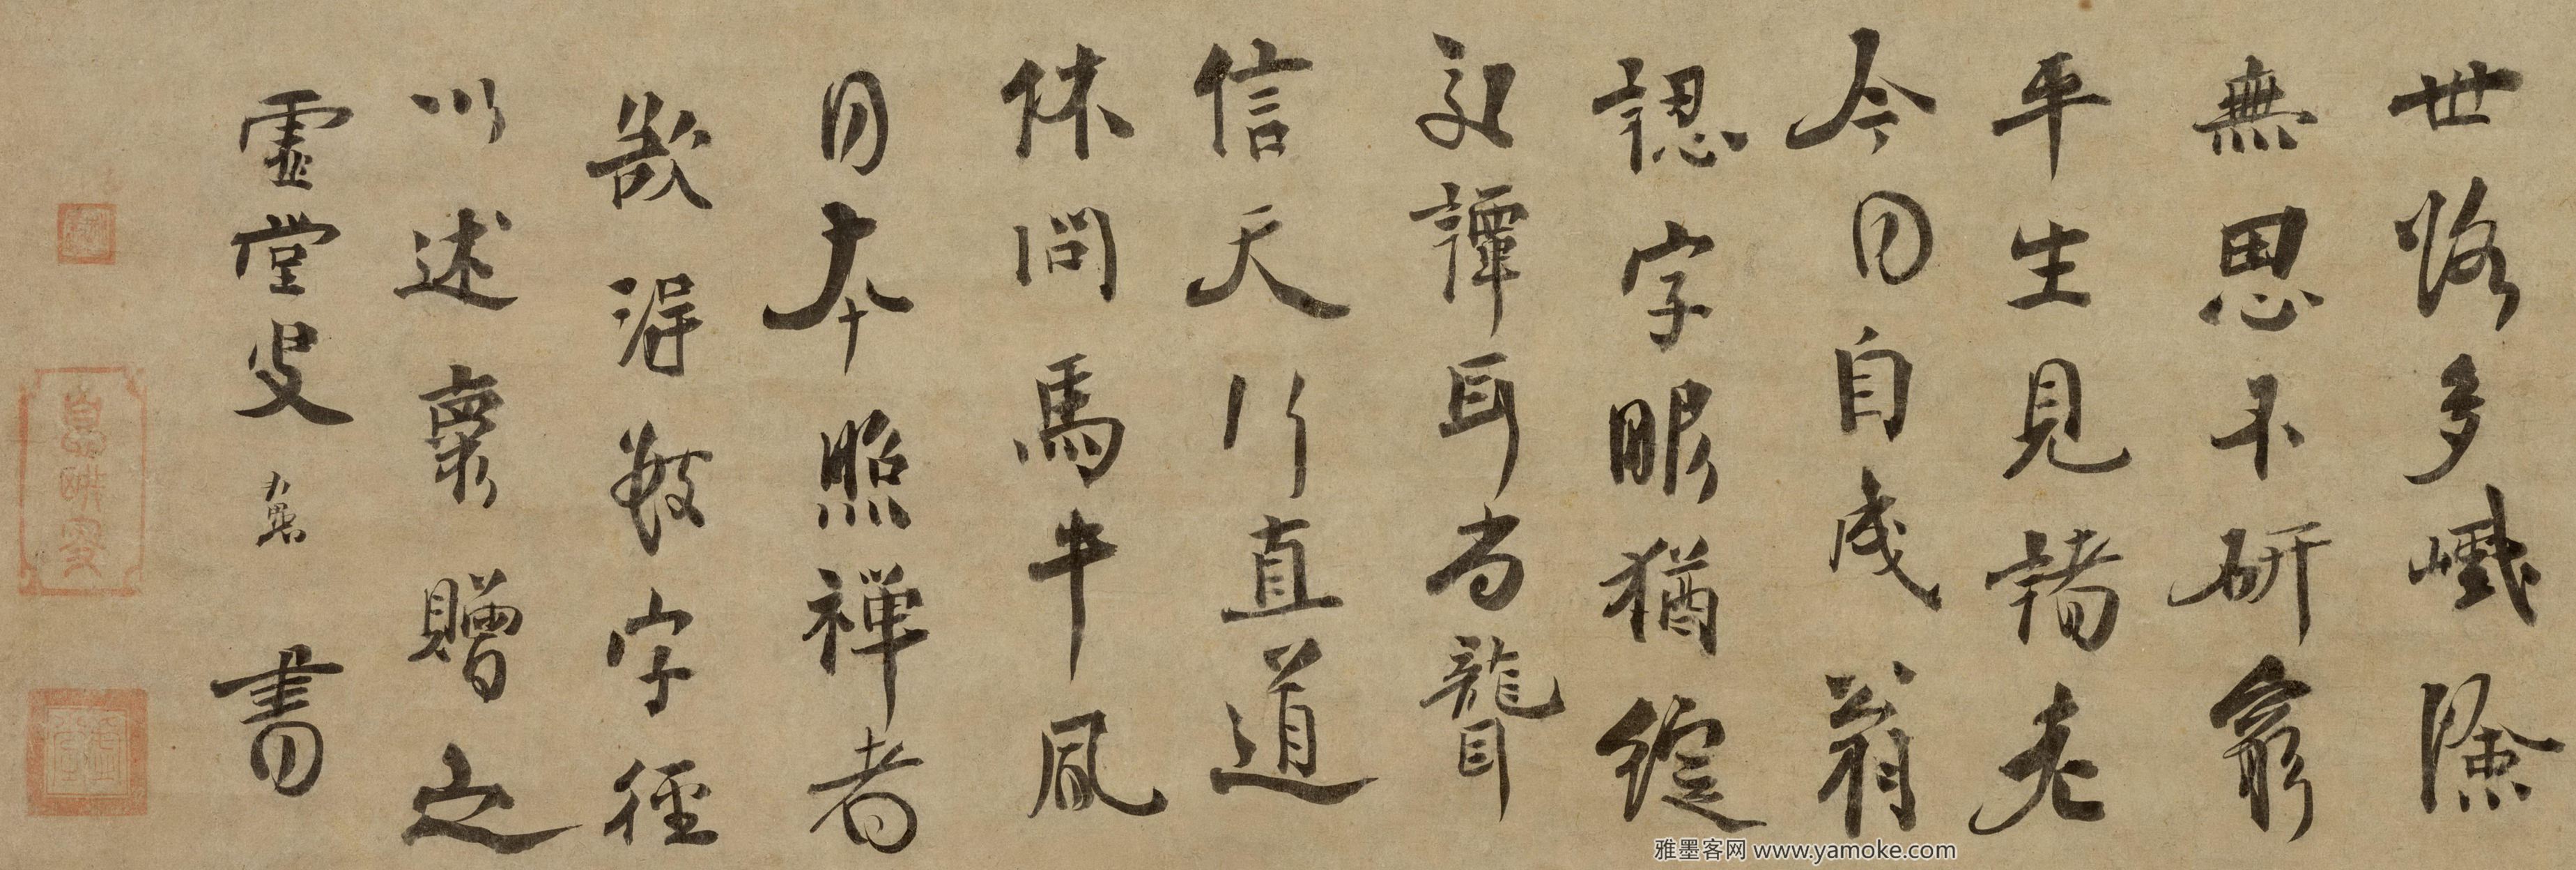 世路多巇險
無思不研窮
平生見諸老
今日自成翁
認字眼猶綻
交譚耳尚聾
信天行直道
休問馬牛風
日本照禅者
欲得數字徑
以述懷贈之
虛堂叟智愚書
雅墨客网 www.yamoke.com